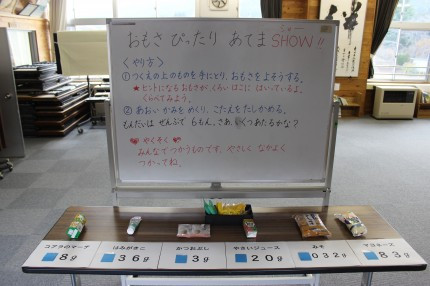 おもさ ぴったり あてまSHOW!!
ショー
<やり方>
①つくえの上のものを手にとり、おもさをよそうする。
★ヒントになるおもさが、くろいはこに はいっているよ。
くらべてみよう。
②あおい かみを めくり、こたえをたしかめる。
もんだいは ぜんぶで 6もん。さあ、いくつあたるかな?
やくそく
みんなでつかうものです。やさしく なかよく
つかってね。
コアラのマーチ
8g
はみがきこ
36g
かつおぶし
3g
やさいジュース
20g
みそ
032g
マヨネーズ
83g